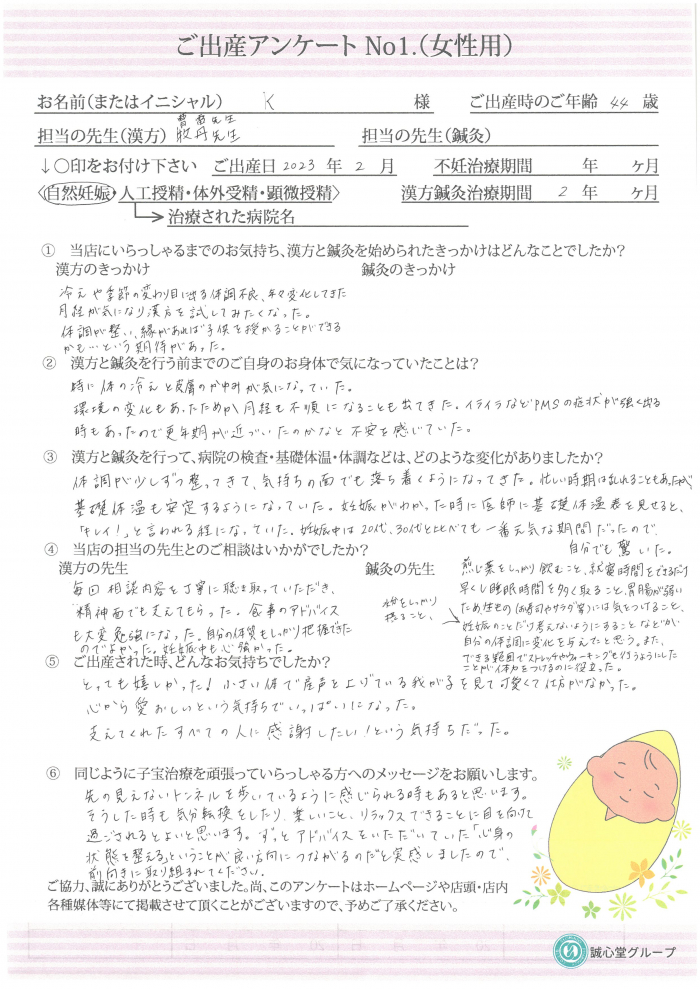 ご出産アンケート No1.(女性用)
お名前(またはイニシャル) K 様 ご出産時のご年齢 44 歳
先生
担当の先生(漢方) 牧丹先生 担当の先生(鍼灸)
↓〇印をお付け下さい ご出産日 2023 年 2 月 不妊治療期間 年 ヶ月
〈自然妊娠・人工授精・体外受精・顕微授精〉 漢方鍼灸治療期間 2 年 ヶ月
治療された病院名
① 当店にいらっしゃるまでのお気持ち、漢方と鍼灸を始められたきっかけはどんなことでしたか?
漢方のきっかけ 鍼灸のきっかけ
冷えや季節の変わり目に出る体調不良、年々変化してきた
月経が気になり漢方を試してみたくなった。
体調が整い、縁があれば子供を授かることができる
かも…という期待があった。
② 漢方と鍼灸を行う前までのご自身のお身体で気になっていたことは?
時に体の冷えと皮膚のかゆみが気になっていた。
環境の変化もあったためか月経も不順になることも出てきた。イライラなどPMSの症状が強く出る
時もあったので更年期が近づいたのかなと不安を感じていた。
③ 漢方と鍼灸を行って、病院の検査・基礎体温・体調などは、どのような変化がありましたか?
体調が少しずつ整ってきて、気持ちの面でも落ち着くようになってきた。忙しい時期は乱れることもあったが、
基礎体温も安定するようになっていた。妊娠がわかった時に医師に基礎体温表を見せると、
「キレイ!」と言われる程になっていた。妊娠中は20代、30代と比べても一番元気な期間だったので、
自分でも驚いた。
④ 当店の担当の先生とのご相談はいかがでしたか?
漢方の先生 鍼灸の先生
毎回相談内容を丁寧に聴き取っていただき、
精神面でも支えてもらった。食事のアドバイス
も大変勉強になった。自分の体質もしっかり把握できた
のでよかった。妊娠中も心強かった。
水分をしっかり
摂ること、
煎じ薬をしっかり飲むこと、就寝時間をできるだけ
早くし睡眠時間を多く取ること、胃腸が弱い
ため生もの(お寿司やサラダ等)には気をつけること、
妊娠のことだけ考えないようにすることなどが
自分の体調に変化を与えたと思う。また、
できる範囲でストレッチやウォーキングも行うようにした
ことが体力をつけるのに役立った。
⑤ ご出産された時、どんなお気持ちでしたか?
とっても嬉しかった!小さい体で産声を上げている我が子を見て可愛くて仕方がなかった。
心から愛おしいという気持ちでいっぱいになった。
支えてくれたすべての人に感謝したい!という気持ちだった。
⑥ 同じように子宝治療を頑張っていらっしゃる方へのメッセージをお願いします。
先の見えないトンネルを歩いているように感じられる時もあると思います。
そうした時も気分転換をしたり、楽しいこと、リラックスできることに目を向けて
過ごされるとよいと思います。ずっとアドバイスをいただいていた「心身の
状態を整える」ということが良い方向につながるのだと実感しましたので、
前向きに取り組まれてください。
ご協力、誠にありがとうございました。尚、このアンケートはホームページや店頭・店内
各種媒体等にて掲載させて頂くことがございますので、予めご了承ください。
誠心堂グループ